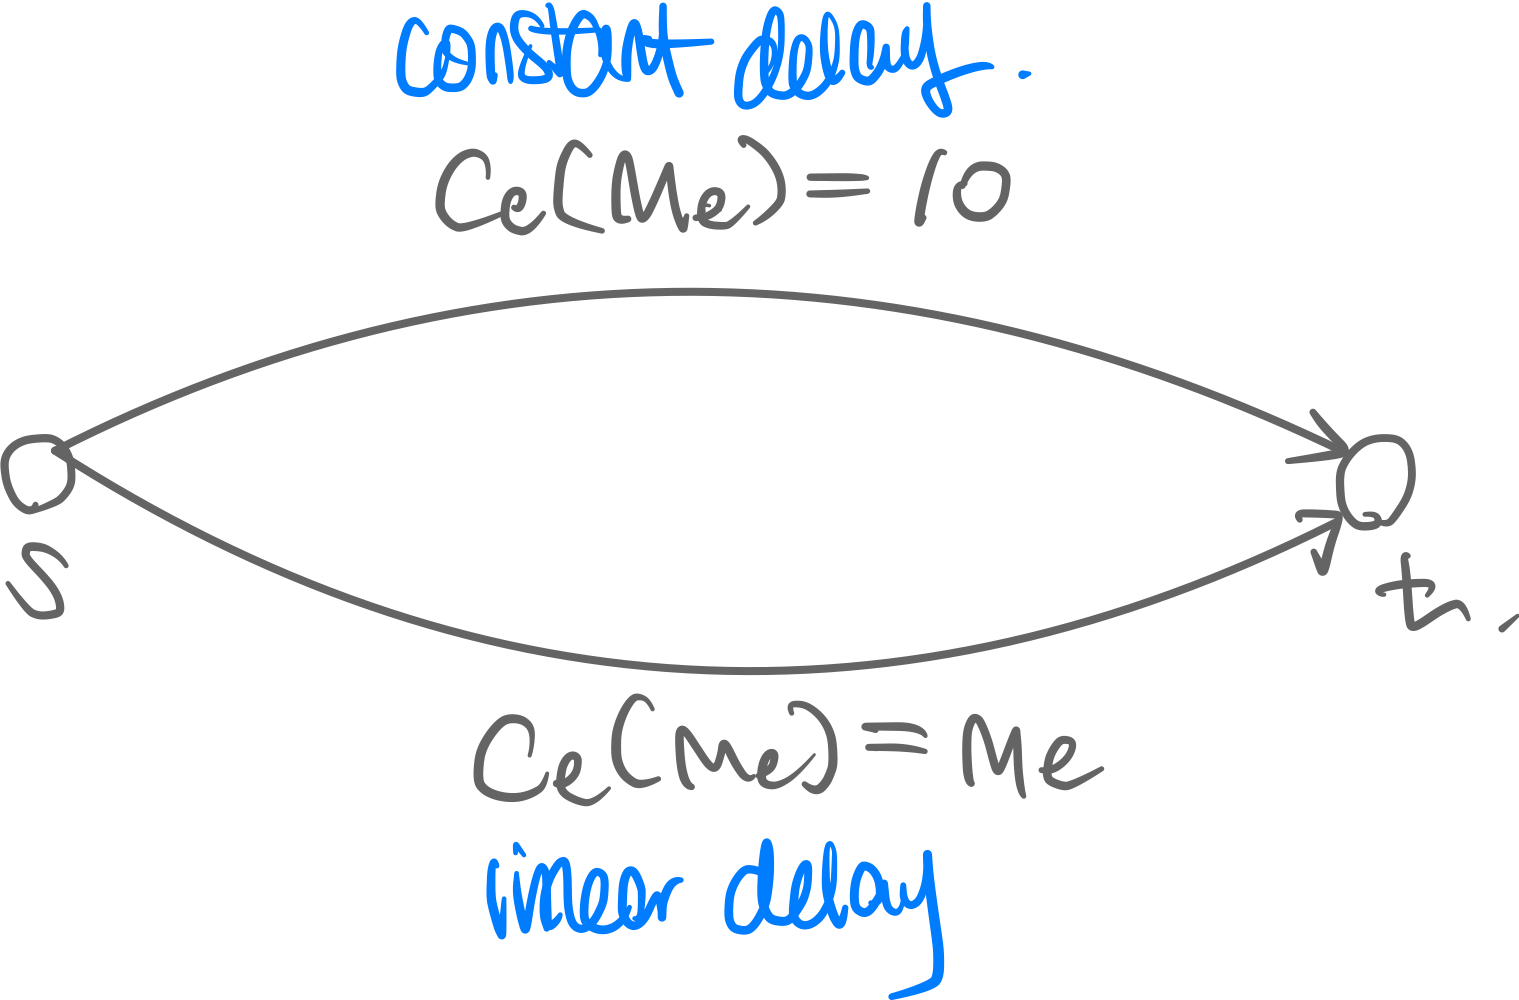 constant delay.
Ce(Me) = 10
s
t
Ce(Me) = Me
linear delay